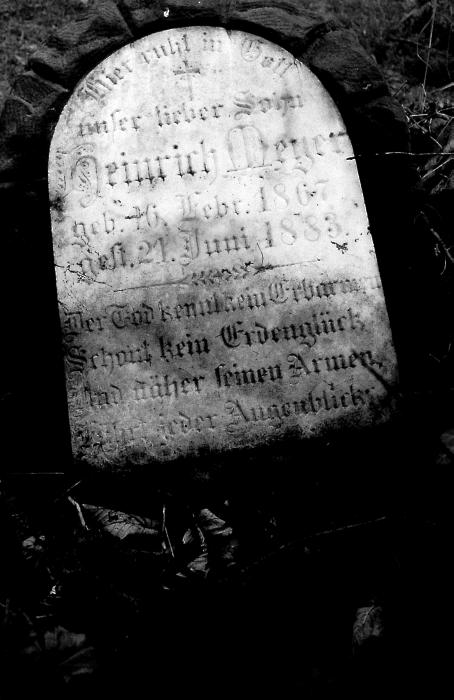 Hier ruht in Gott
unser lieber Sohn
Heinrich Meyer
geb. 16. Febr. 1867
gest. 21. Juni 1883.
Der Tod kennt kein Erbarmen
Schont kein Erdenglück
Und näher seinen Armen
jeder Augenblick.